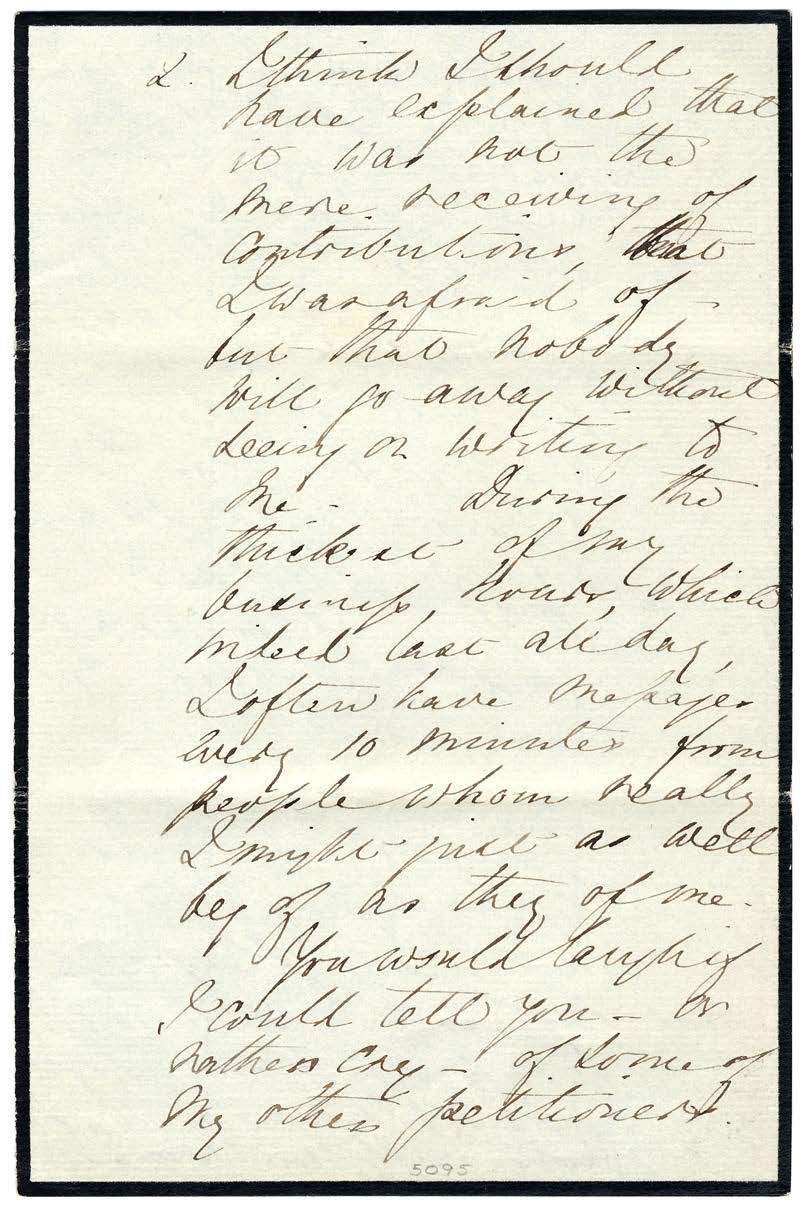 2. I think I should
have explained that
it was not the
mere receiving of
contributions, that
I was afraid of -
but that nobody
will go away without
seeing or writing to
me - During the
thickest of my
business hours, which
indeed last all day,
I often have messages
every 10 minutes from
people whom really
I might just as well
beg of as they of me.
You would laugh if
I could tell you - or
rather cry - of some of
my other petitioners.
5095